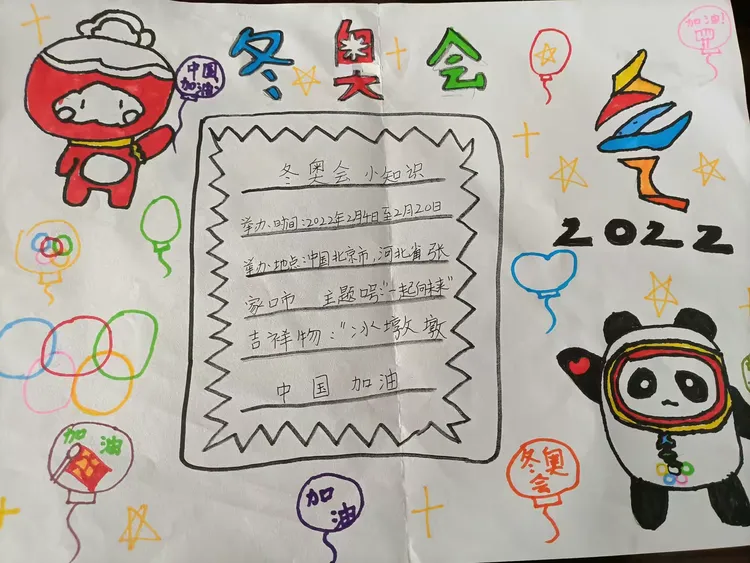 冬奥会
加油!
中国
加油
2022
冬奥会小知识
举办时间:2022年2月4日至2月20日
举办地点:中国北京市,河北省张
家口市 主题口号:"一起向未来"
吉祥物:"冰墩墩
中国加油
加油
加油
冬奥
会